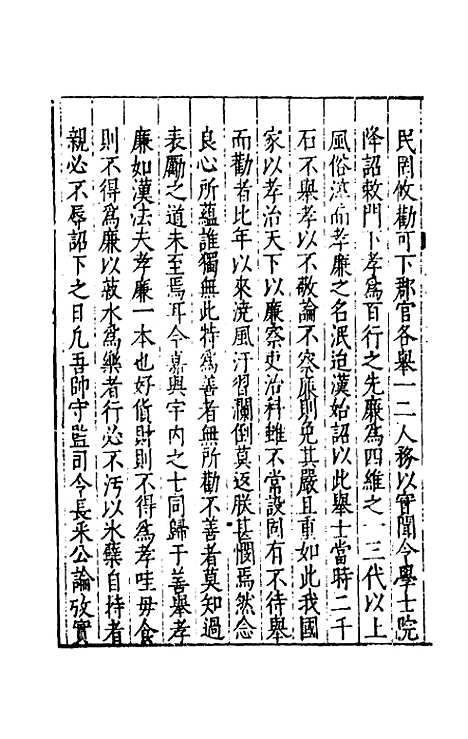 民罔攸勸可下郡官各舉一二人務以實聞令學士院
降詔敕門下孝爲百行之先廉爲四維之一三代以上
風俗淳而孝廉之名泯迨漢始詔以此舉士當時二千
石不舉孝以不敬論不察廉則免其嚴且重如此我國
家以孝治天下以廉察吏治科雖不常設固有不待舉
而勸者比年以來流風汙習瀾倒莫返朕甚憫焉然念
良心所蘊誰獨無此特爲善者無所勸不善者莫知過
表勵之道未至焉耳今嘉與宇内之士同歸于善舉孝
廉如漢法夫孝廉一本也好貨財則不得爲孝哇毋食
則不得爲廉以菽水爲樂者行必不汚以氷蘖自持者
親必不辱詔下之日凡吾帥守監司令長采公論攷實